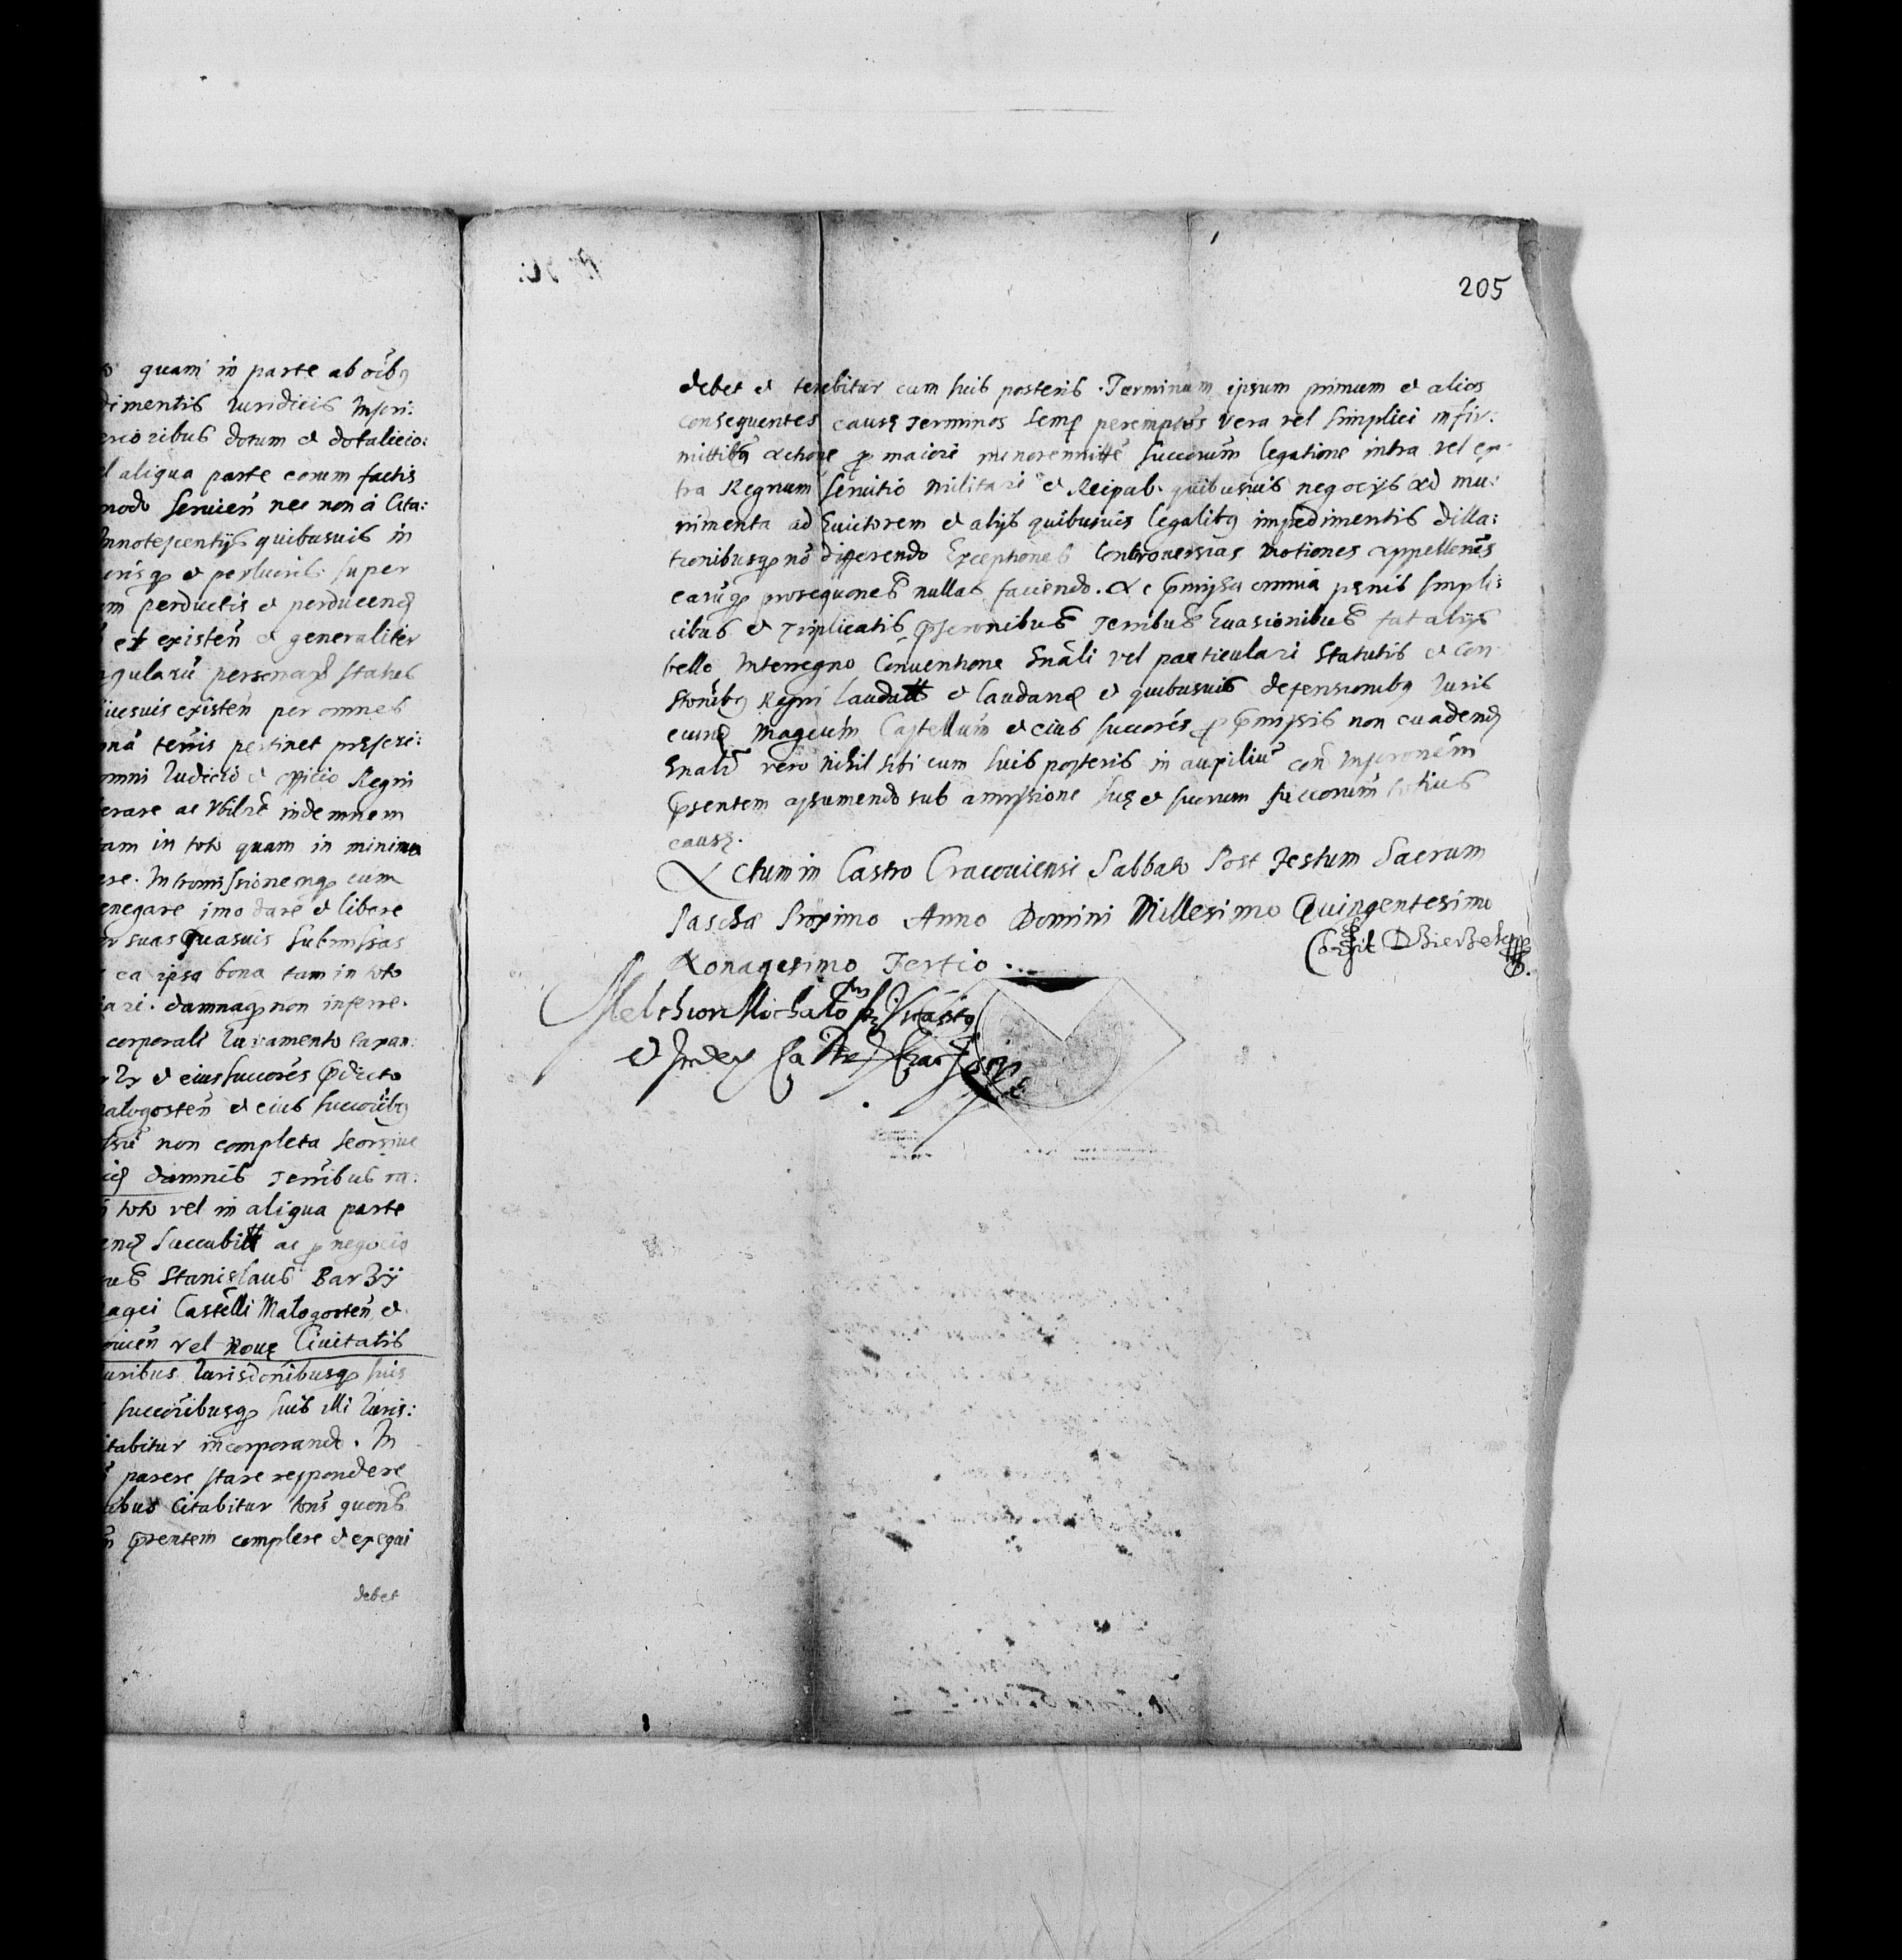 quam in parte ab oib9
dimentis Iuridicis Inscri:
ercioribus dotum et dotalicio:
l aliqua parte eorum factis
modo seruien nec non à Cita:
Innotescentijs quibusuis in
super
m perductis et perducend
existen et generaliter
ngularu personar status
quesuis existen per omnes
ona terris pertinet prescri:
omni Iudicio et officio Regni
erare ac indemnem
tam in toto quam in minima
ere. Intromissionemq cum
enegare imo dare et libere
suas quasuis submissas
ea ipsa bona tam in toto
ari. damnaq non inferre.
corporali Iuramento taxan:
et eius succores pdicto
alogosten et eius succorib9
non completa seorsiue
damnis Terribus ra:
toto vel in aliqua parte
end succubitt ac p negocio
Stanislaus Barzÿ
agci Castelli Malogosten et
ouien vel Nouę Ciuitatis
uribus Iurisdonibusq suis
succoribusq suis illi Iuris:
itabitur incorporand. In
parere stare respondere
ibus Citabitur tons quons
psentem complere et exequi
debet
205
debet et tenebitur cum suis posteris. Terminum ipsum primum et alios
consequentes causę Terminos semp peremptos vera vel simplici infir:
mittib9 actione p maiori minoremitte succorum legatione intra vel ex
tra Regnum seruitio militari et Reipab. quibusuis negocijs ad mu:
nimenta ad Euictorem et alijs quibusuis legalib9 impedimentis dilla:
tionibusq no differendo Exceptiones Controuersias motiones appellones
earuq prosequones nullas faciendo. Ac pmissa omnia pęnis simpli:
cibus et Triplicatis pseronibus Terribus Euasionibus fatalijs
bello Interregno Conuentione Gnali vel particulari Statutis et Con
stonib9 Regni laudatt et laudand et quibusuis defensionib9 Iuris
eund Magcum Castellum et eius succores p pmissis non euadend
Gnalr vero nihil sibi cum suis posteris in auxiliu con Inscronem
psentem assumendo sub amissione suę et suorum succorum totius
causę.
Actum in Castro Cracouiensi Sabbato Post Festum Sacrum
Pascha Proximo Anno Domini Millesimo Quingentesimo
Nonagesimo Tertio.
Melchior Michalo
et Index